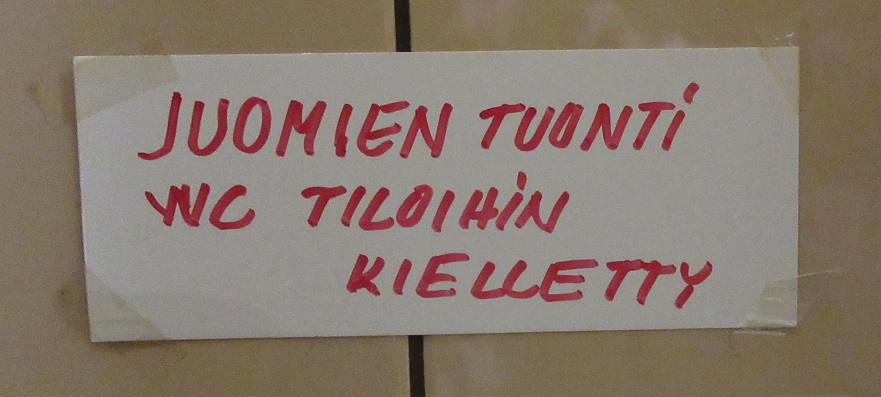 JUOMIEN TUONTI
WC TILOIHIN
KIELLETTY